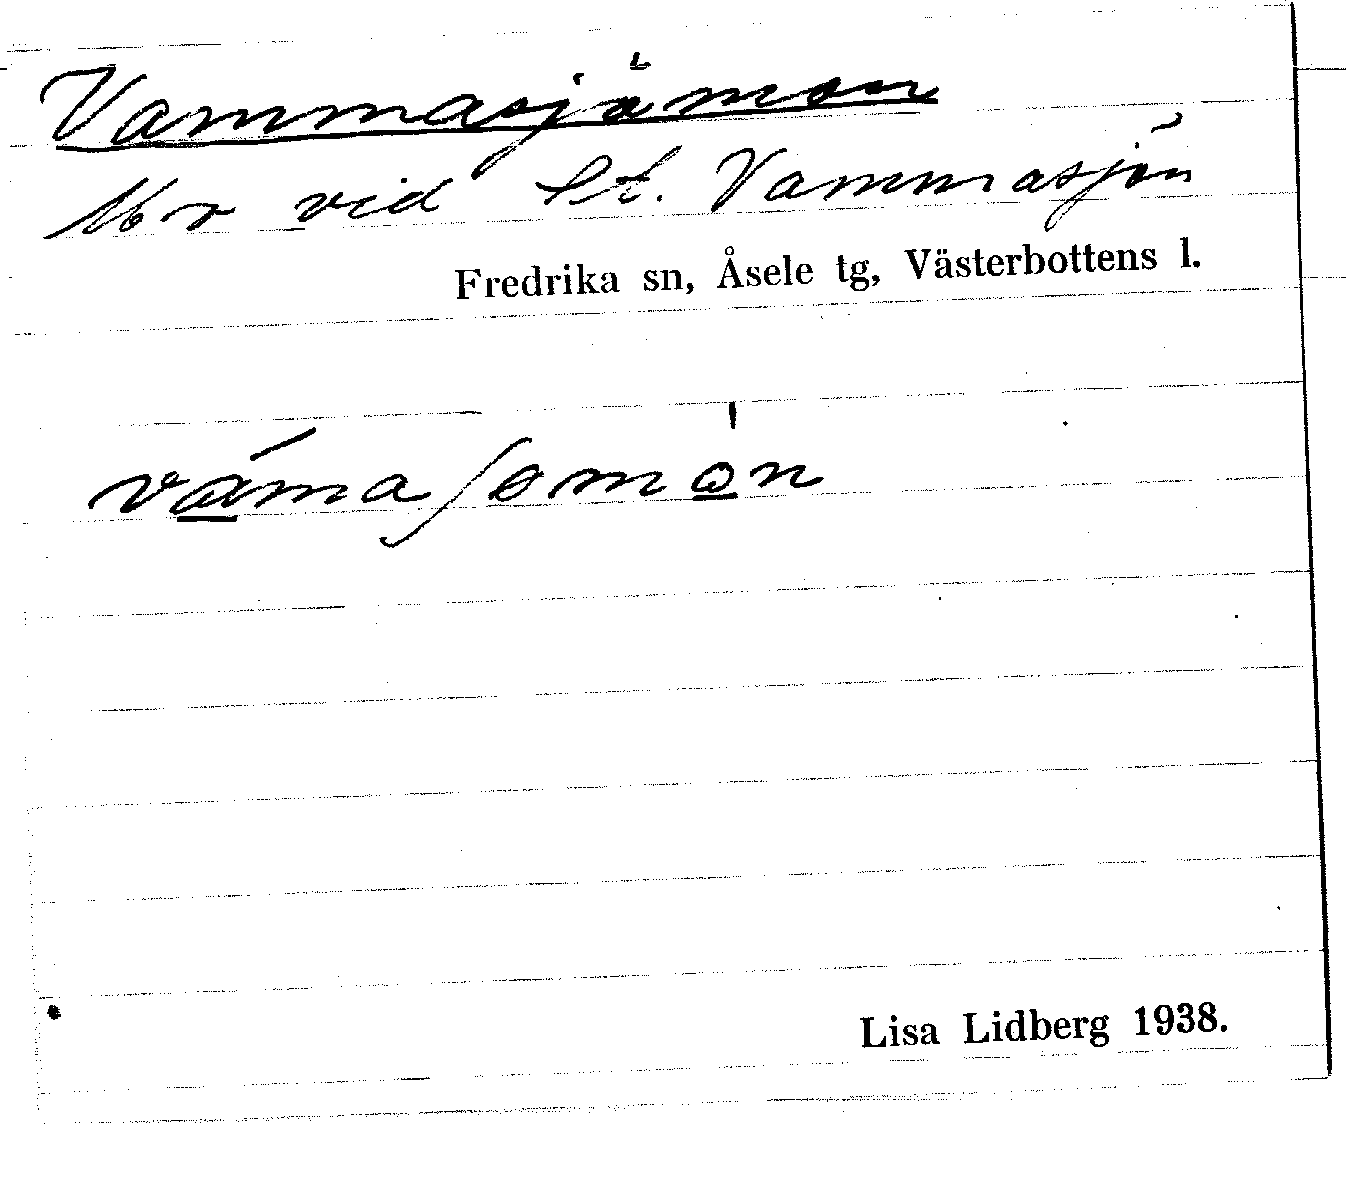 Vammasjömon
Mo vid St. Vammasjön
Fredrika sn, Åsele tg, Västerbottens l.
Lisa Lidberg 1938.